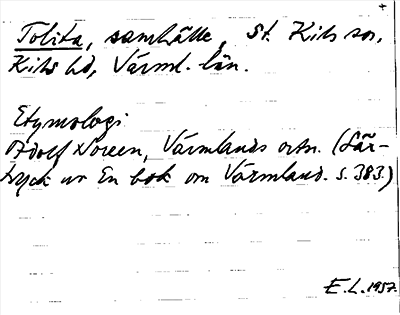 +
Tolita, samhälle, St. Kils sn,
Kils hd, Värml. län.
Etymologi
Adolf Noreen, Värmlands ortn. (Sär-
tryck ur En bok om Värmland. s. 383.)
E.L. 1957.